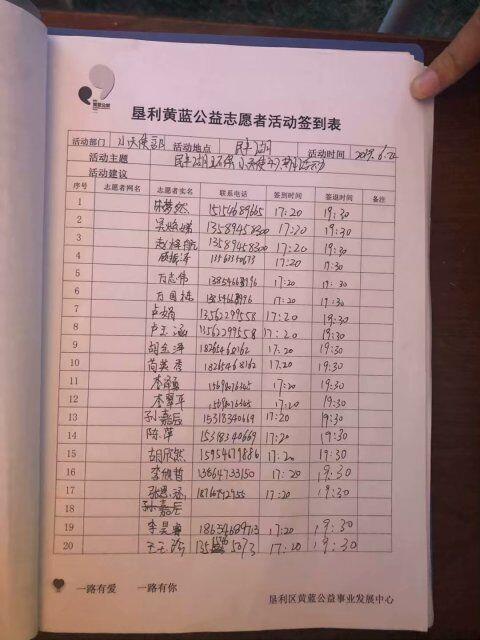 垦利黄蓝公益志愿者活动签到表
活动部门 小天使部 活动地点 民丰湖 活动时间 2019.6.22
活动主题 民丰湖环保小天使
活动建议
序号 志愿者网名 志愿者实名 联系电话 签到时间 签退时间 备注
1 林梦然 15154689665 17:20 19:30
2 13589458300 17:20 19:30
3 13589458300 17:20 19:30
4 13560340673 17:20 17:30
5 万志伟 13854668996 17:20 19:30
6 万国栋 13854668996 17:20 19:30
7 卢娟 13562299558 17:20 19:30
8 卢王涵 13562299558 17:20 19:30
9 胡金洋 18265468162 17:20 19:30
10 苟英秀 18265468162 17:20 19:30
11 17:20 19:30
12 李翠平 17:20 19:30
13 孙嘉辰 15318340669 17:20 19:30
14 陈萍 15318340669 17:20 19:30
15 胡欣然 15954679886 17:20 19:30
16 李欣哲 13864733150 17:20 19:30
17 张恩涵 17:20 19:30
18 孙嘉辰
19 李昊睿 18654689713 17:20 19:30
20 17:20 19:30
一路有爱 一路有你
垦利区黄蓝公益事业发展中心